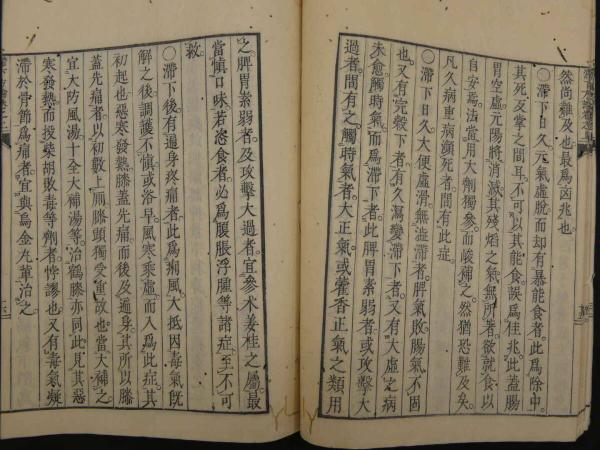 然尚難及也最爲凶兆也
○滯下日久元氣虛脫而却有暴能食者此爲除中
其死反掌之間耳不可以其能食誤爲佳兆此蓋腸
胃空虛元陽將消滅其殘熖之氣無所著欲就食以
自安焉法當用大劑獨參而峻補之然猶恐難及矣
凡久病重病瀕死者間有此症
○滯下日久大便虛滑無澁滯者脾氣敗腸氣不固
也又有完穀下者有久瀉變滯下者又有大虛之病
未愈觸時氣而爲滯下者此脾胃素弱者或攻擊大
過者間有之觸時氣者大正氣或藿香正氣之類用
之脾胃素弱者及攻擊大過者宜參朮姜桂之屬最
當愼口味若恣食者必爲腹脹浮腫等諸症至不可
救
○滯下後有遍身疼痛者此爲痢風大抵因毒氣旣
解之後調護不愼或浴早風寒乘虛而入爲此症其
初起也惡寒發熱膝蓋先痛而後及遍身其所以膝
蓋先痛者以初數上厠膝頭獨受重故也當大補之
宜大防風湯十全大補湯等治鶴膝亦同此見其惡
寒發熱而投柴胡敗毒等劑者悖謬也又有毒氣凝
滯於骨節爲痛者宜與烏金丸輩治之